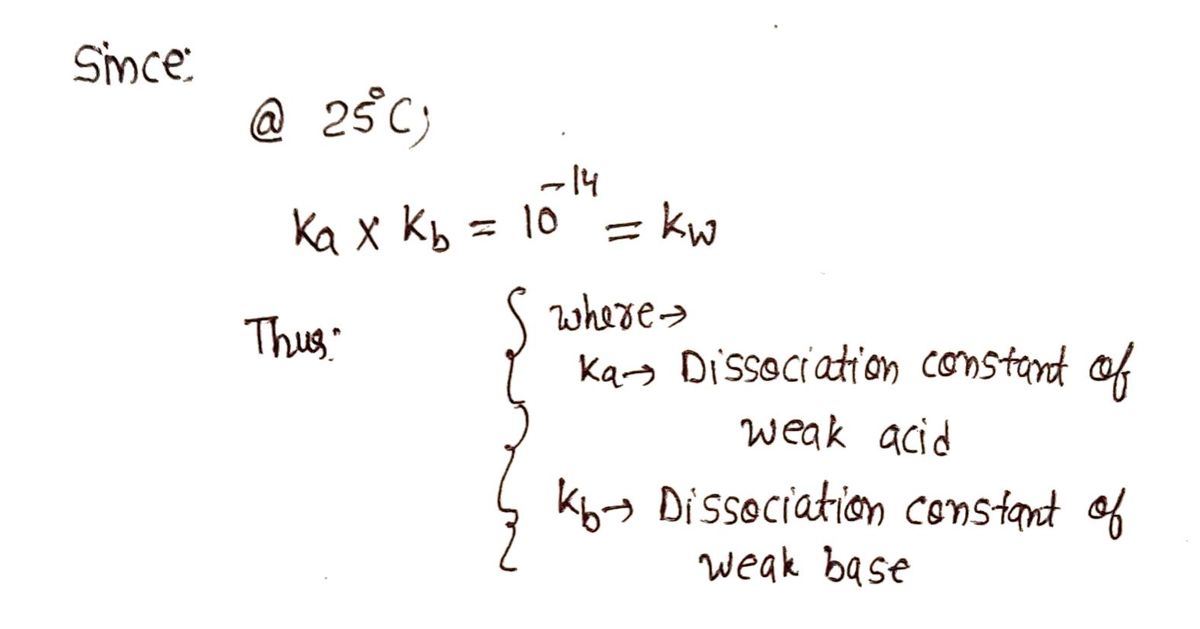 Since:
@ 25°C;
Ka x Kb = 10^-14 = Kw
Thus:
where→
Ka→ Dissociation constant of
weak acid
Kb→ Dissociation constant of
weak base